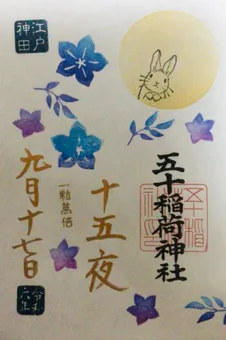 五十稲荷神社
十五夜
一粒萬倍
江戸
神田
九月十七日
令和
六年